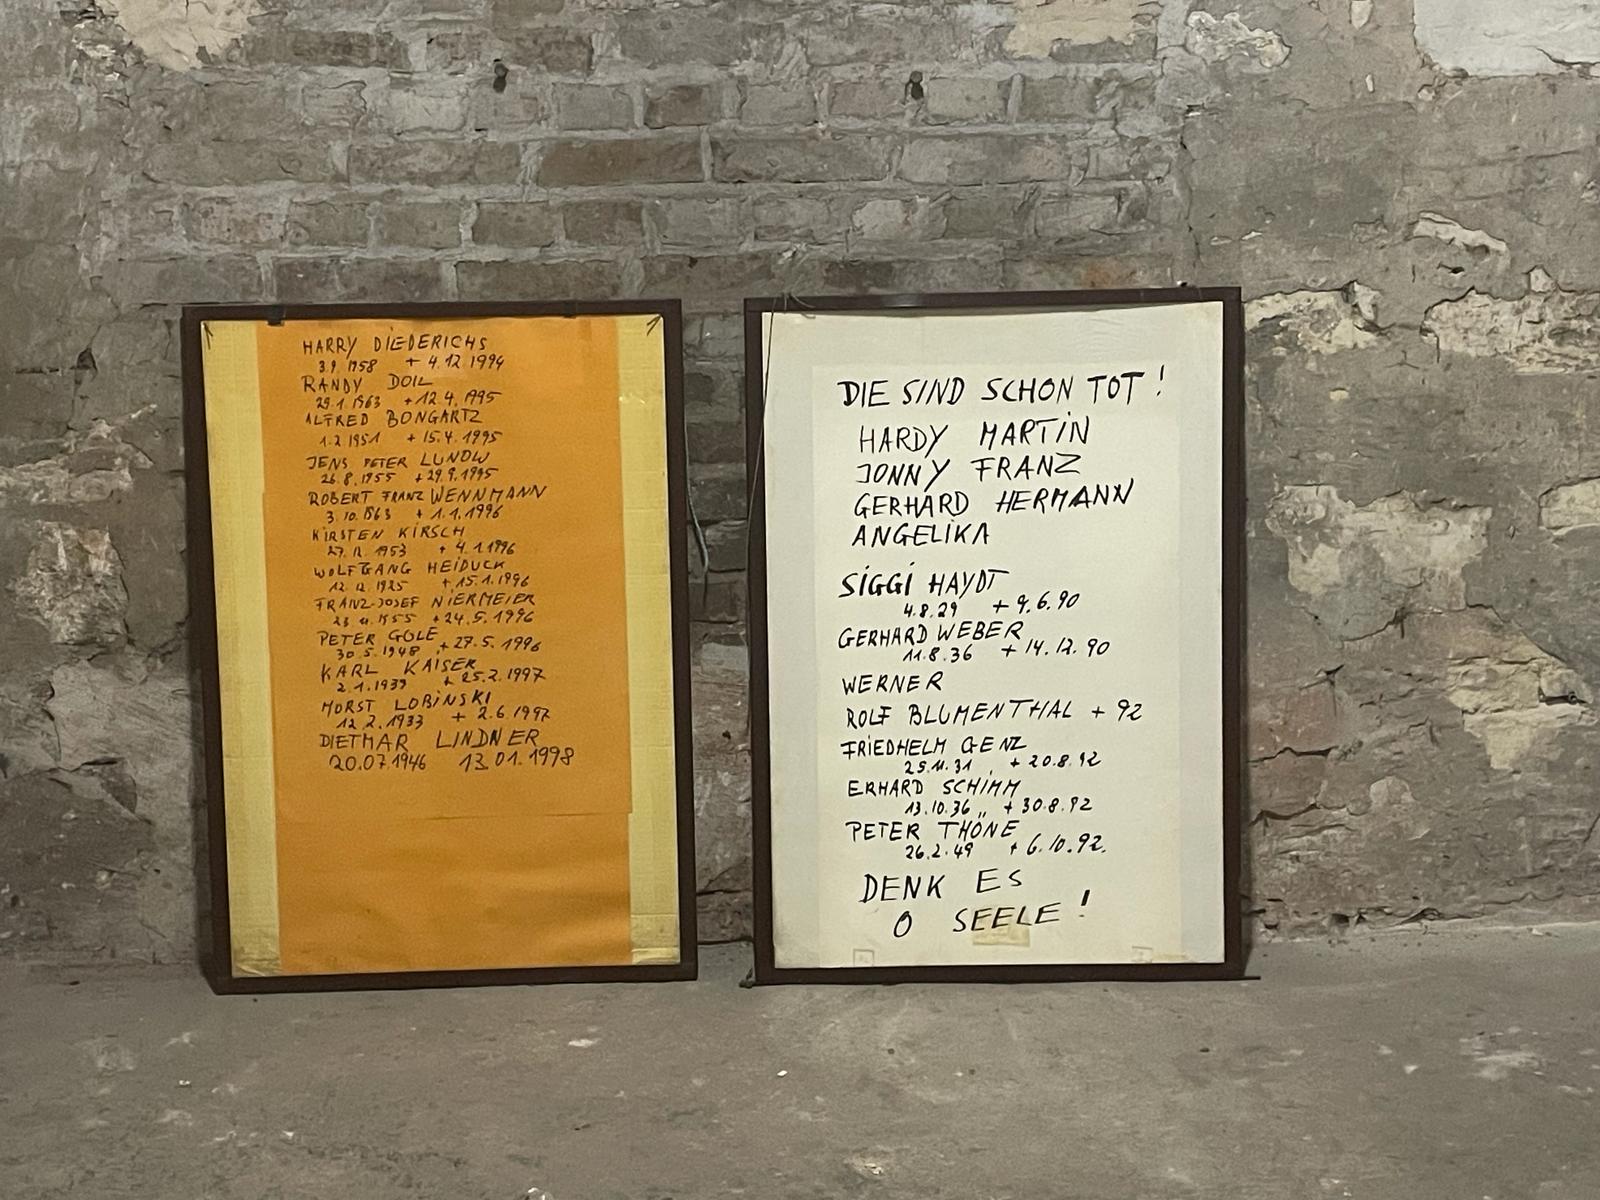 HARRY DIEDERICHS
3.9.1958 + 4.12.1994
RANDY DOIL
29.1.1963 + 12.4.1995
ALFRED BONGARTZ
1.2.1951 + 15.4.1995
JENS PETER LUNOW
26.8.1955 + 29.9.1995
ROBERT FRANZ WENNMANN
3.10.1963 + 1.1.1996
KIRSTEN KIRSCH
+ 4.1.1996
WOLFGANG HEIDUCK
12.12.1925 + 15.1.1996
FRANZ-JOSEF NIERMEIER
23.11.1955 + 24.5.1996
PETER GOLE
30.5.1948 + 27.5.1996
KARL KAISER
2.1.1939 + 25.2.1997
HORST LOBINSKI
12.2.1933 + 2.6.1997
DIETMAR LINDNER
20.07.1946 13.01.1998
DIE SIND SCHON TOT!
HARDY MARTIN
JONNY FRANZ
GERHARD HERMANN
ANGELIKA
SIGGI HAYDT
4.8.29 + 9.6.90
GERHARD WEBER
11.8.36 + 14.12.90
WERNER
ROLF BLUMENTHAL + 92
FRIEDHELM GENZ
25.11.31 + 20.8.92
ERHARD SCHIMM
13.10.36 + 30.8.92
PETER THÖNE
26.2.49 + 6.10.92.
DENK ES
O SEELE!